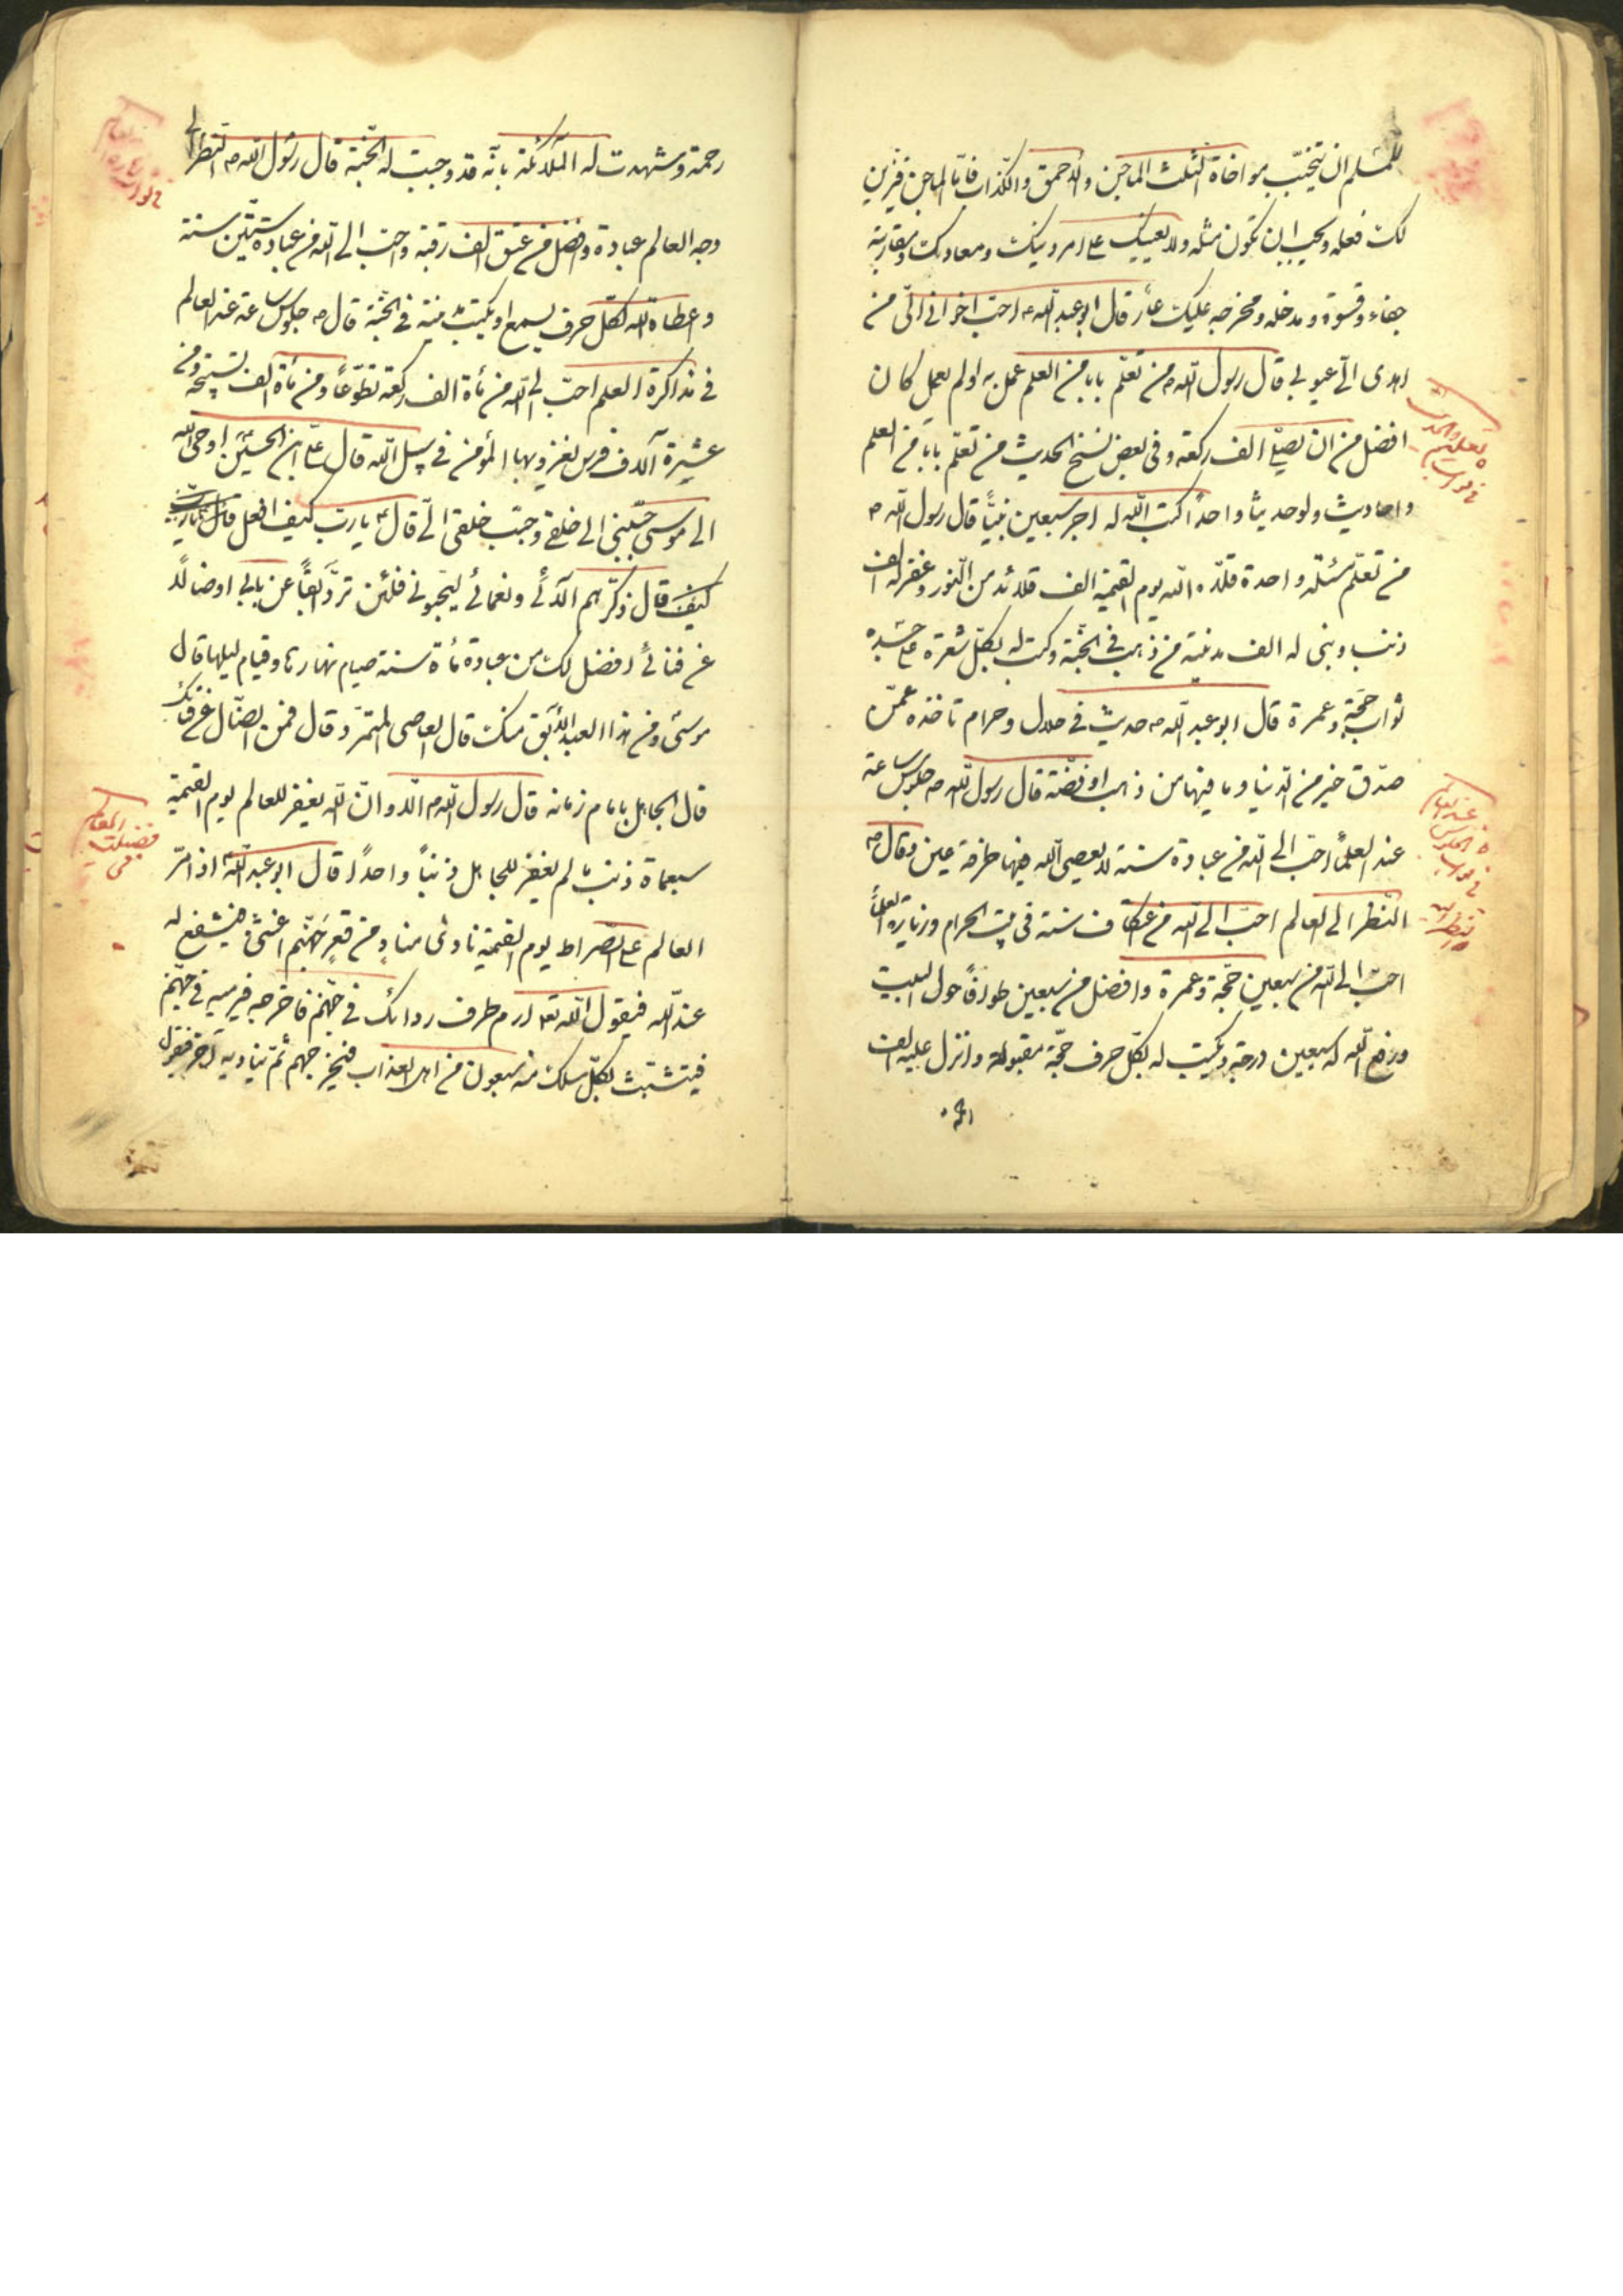 للمسلم ان يتجنّب مواخاة الثلث الماجن والاحمق والكذاب فامّا الماجن فيزين
لك فعله ويحب ان تكون مثله ولا يعينك على امر دينك ومعادك ومقاربته
جفاء وقسوة ومدخله ومخرجه عليك عار قال ابو عبد الله ع احبّ اخوانى الىّ من
اهدى الىّ عيوبى قال رسول الله ص من تعلّم بابا من العلم عمل به او لم يعمل كان
افضل من ان يصلّى الف ركعة وفى بعض نسخ الحديث من تعلّم بابا من العلم
واحاديث ولو حديثا واحدا كتب الله له اجر سبعين نبيّا قال رسول الله ص
من تعلّم مسئلة واحدة قلّده الله يوم القيمة الف قلائد من النور وغفر له الف
ذنب وبنى له الف مدينة من ذهب فى الجنّة وكتب له بكلّ شعرة على جسده
ثواب حجّة وعمرة قال ابو عبد الله ع حديث فى حلال وحرام تاخذه عمّن
صدّق خير من الدنيا وما فيها من ذهب او فضّة قال رسول الله ص جلوس ساعة
عند العلماء احبّ الى الله من عبادة سنة لا يعصى الله فيها طرفة عين وقال ص
النظر الى العالم احبّ الى الله من اعتكاف سنة فى بيت الحرام وزيارة العلماء
احبّ الى الله من سبعين حجّة وعمرة وافضل من سبعين طوافا حول البيت
ورفع الله له سبعين درجة ويكتب له بكلّ حرف حجّة مقبولة وانزل عليه الف
رحمة
رحمة وشهدت له الملائكة بانّه قد وجبت له الجنّة قال رسول الله ص النظر الى
وجه العالم عبادة وافضل من عتق الف رقبة واحبّ الى الله من عبادة ستّين سنة
واعطاه الله لكلّ حرف يسمع او يكتب مدينة فى الجنّة قال ص جلوس ساعة عند العالم
فى مذاكرة العلم احبّ الى الله من مأة الف ركعة تطوّعا ومن مأة الف تسبيحة ومن
عشرة آلاف فرس يغزو بها المؤمن فى سبيل الله قال علىّ ابن الحسين اوحى الله
الى موسى حبّبنى الى خلقى وحبّب خلقى الىّ قال ع يا ربّ كيف افعل قال
كيف قال ذكّرهم آلائى ونعمائى ليحبّونى فلئن تردّ آبقا عن بابى او ضالّا
عن فنائى افضل لك من عبادة مأة سنة صيام نهارها وقيام ليلها قال
موسى ومن هذا العبد الآبق منك قال العاصى المتمرّد قال فمن الضالّ عن فنائك
قال الجاهل بامام زمانه قال رسول الله ص الا وانّ الله يغفر للعالم يوم القيمة
سبعمأة ذنب ما لم يغفر للجاهل ذنبا واحدا قال ابو عبد الله ع اذا مرّ
العالم على الصراط يوم القيمة نادى مناد من قعر جهنّم اغثنى فيشفع له
عند الله فيقول الله تعا ارم طرف ردائك فى جهنّم فاخرجه فيرميه فى جهنّم
فيتشبّث بكلّ سلك منه سبعون من اهل العذاب فيخرجهم ثمّ يناديه آخر فيقول